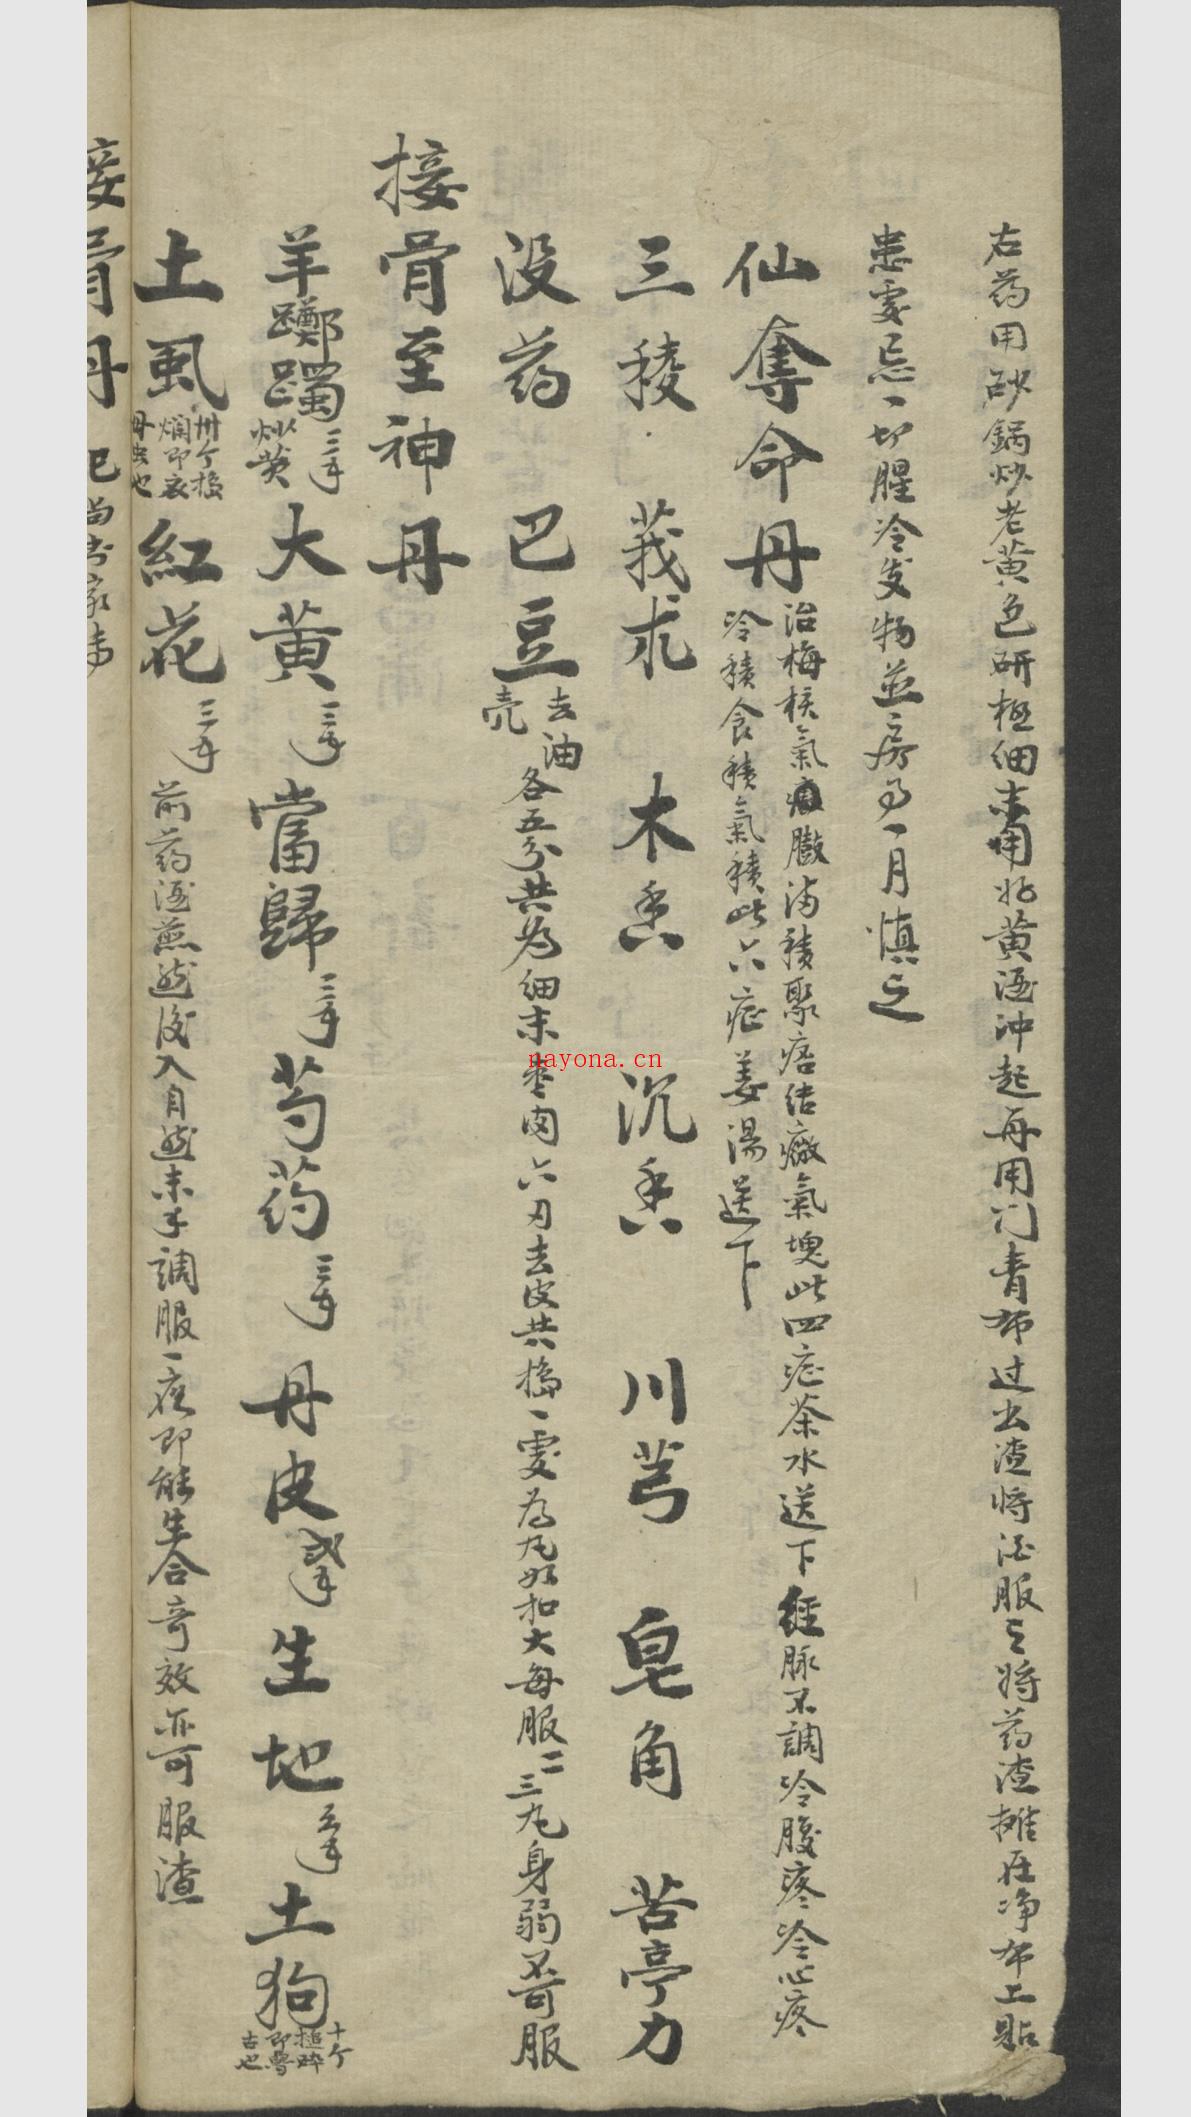 右药用砂鍋炒老黄色研極細末用好黄酒冲起再用门青布过去渣将酒服之将药渣摊在净布上貼
患處忌一切腥冷发物並房事一月慎之
仙奪命丹 治梅核氣臌满積聚痞结癥氣塊此四症茶水送下經脉不調冷腹疼冷心疼
冷積食積氣積此六症姜湯送下
三稜 莪术 木香 沉香 川芎 皂角 苦亭力
没药 巴豆 去油壳 各五分共为细末枣肉六刄去皮共搗一處为丸如扣大每服二三丸身弱不可服
接骨至神丹
羊躑躅 三多 炒黄 大黄 三多 當歸 三多 芍药 三多 丹皮 生地 土狗 十个搥碎
土虱 卅个搗烂即 母虫也 紅花 三多 前药酒煎然後入自然末 調服一夜即能生合奇效亦可服渣
接骨丹
nayona.cn